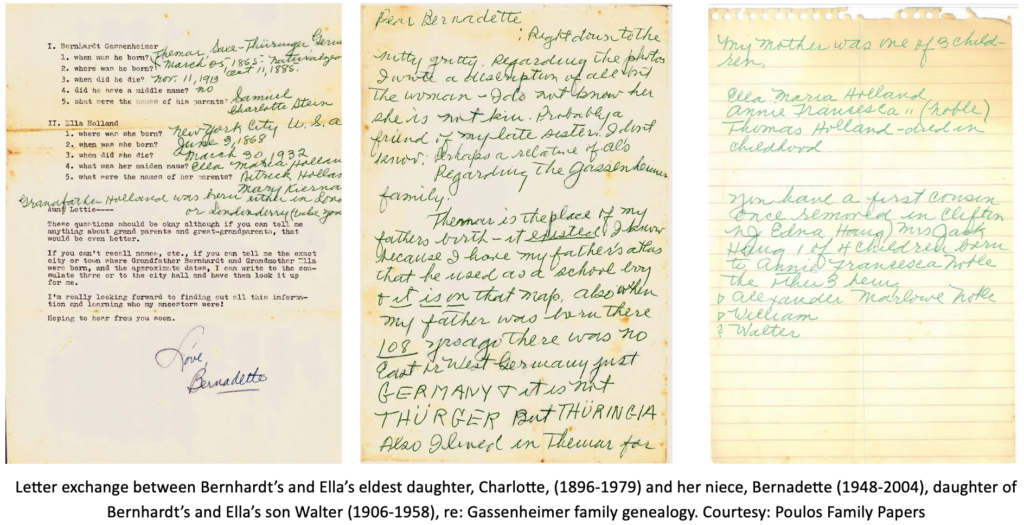 I. Bernhardt Gassenheimer
1. when was he born? March 05, 1865 - 
2. where was he born? Themar Saxe-Thüringer
3. when did he die? Nov. 11, 1913 Oct 11, 1886.
4. did he have a middle name? no
5. what were the names of his parents? Samuel
Charlotte Stein
II. Ella Holland
1. where was she born? New York City U.S.A
2. when was she born? June 3, 1868
3. when did she die? March 30, 1932
4. what was her maiden name? Ella Maria Hollan
5. what were the names of her parents? Patrick Hollan
Mary Kierna
Grandfather Holland was born either in
or Londonderry
Aunt Lottie----
These questions should be okay although if you can tell me
anything about grand parents and great-grandparents, that
would be even better.
If you can't recall names, etc., if you can tell me the exact
city or town where Grandfather Bernhardt and Grandmother Ella
were born, and the approximate dates, I can write to the con-
sulate there or to the city hall and have them look it up
for me.
I'm really looking forward to finding out all this informa-
tion and learning who my ancestors were!
Hoping to hear from you soon.
Love,
Bernadette
Dear Bernadette
Right down to the
nitty gritty. Regarding the photos
I wrote a description of all but
the woman - I do not know her
she is not kin. Probably a
friend of my late sisters. I don't
know. Perhaps a relative of al's
Regarding the Gassenheimer
family:
Themar is the place of my
fathers birth - it existed. I know
because I have my father's atlas
that he used as a school boy
& it is on that map. Also when
my father was born there
108 yrs ago there was no
East or West Germany just
GERMANY & it is not
THÜRGER But THÜRINGIA
Also I lived in Themar for
My mother was one of 3 child-
ren.
Ella Maria Holland
Annie Francesca " (Noble)
Thomas Holland - died in
childhood
You have a first cousin
once removed in Clifton
NJ Edna Haug) Mrs Jack
Haug 1 of 4 children born
to Annie Francesca Noble
the other 3 being
Alexander Marlowe Noble
William
? Walter
Letter exchange between Bernhardt's and Ella's eldest daughter, Charlotte, (1896-1979) and her niece, Bernadette (1948-2004), daughter of
Bernhardt's and Ella's son Walter (1906-1958), re: Gassenheimer family genealogy. Courtesy: Poulos Family Papers